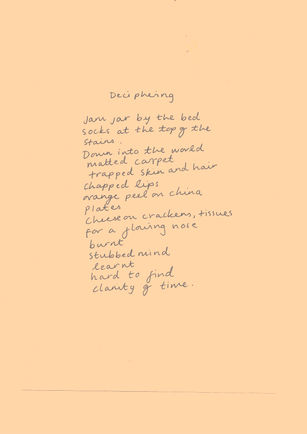 Deciphering
Jam jar by the bed
socks at the top of the
stains.
Down into the world
matted carpet
trapped skin and hair
chapped lips
orange peel on china
plates
cheese on crackers, tissues
for a flowing nose
burnt
stubbed mind
learnt
hard to find
clarity of time.